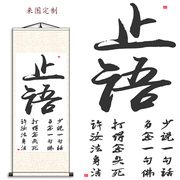 来图定制
止语
少说一句话
多念一句佛
打得念头死
许汝法身活
止语
少说一句话
多念一句佛
打得念头死
许汝法身活